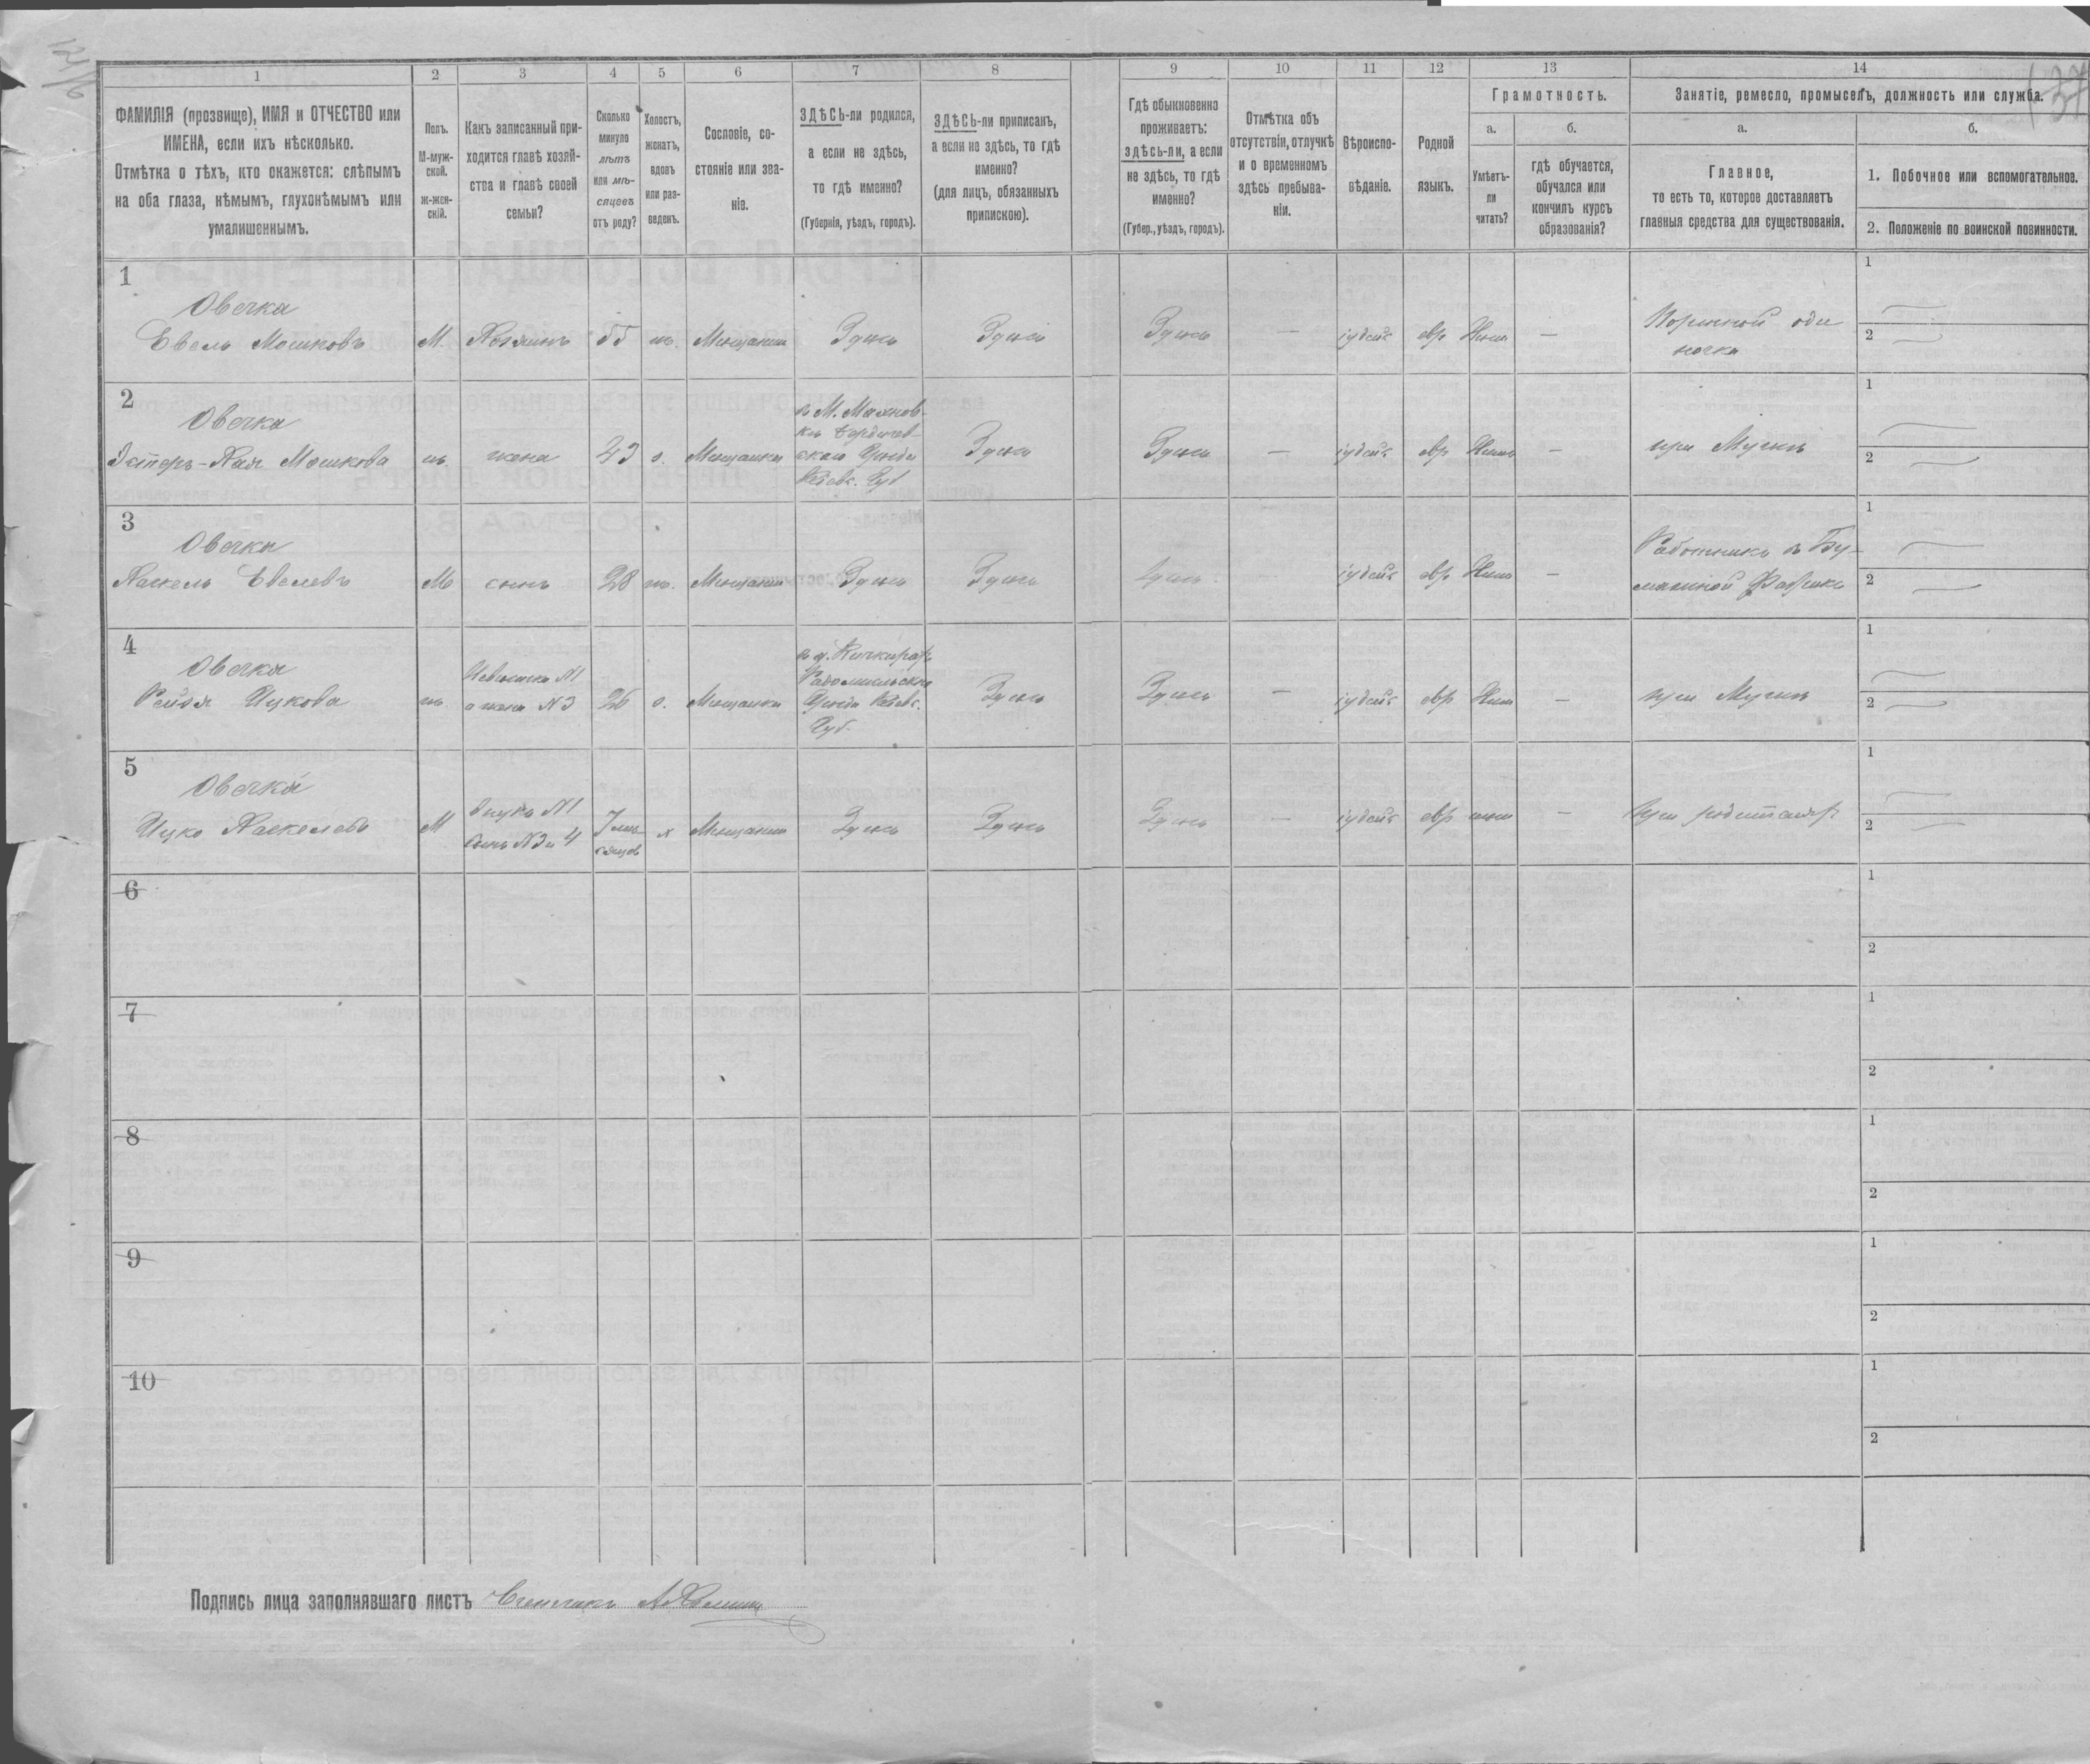 1
2
3
4
5
6
7
8
9
10
11
12
13
14
ФАМИЛІЯ (прозвище), ИМЯ и ОТЧЕСТВО или
ИМЕНА, если ихъ нѣсколько.
Отмѣтка о тѣхъ, кто окажется: слѣпымъ
на оба глаза, нѣмымъ, глухонѣмымъ или
умалишеннымъ.
Полъ.
М-муж-
ской.
ж-жен-
скій.
Какъ записанный при-
ходится главѣ хозяй-
ства и главѣ своей
семьи?
Сколько
минуло
лѣтъ
или мѣ-
сяцевъ
отъ роду?
Холостъ,
женатъ,
вдовъ
или раз-
веденъ.
Сословіе, со-
стояніе или зва-
ніе.
ЗДѢСЬ-ли родился,
а если не здѣсь,
то гдѣ именно?
(Губернія, уѣздъ, городъ).
ЗДѢСЬ-ли приписанъ,
а если не здѣсь, то гдѣ
именно?
(для лицъ, обязанныхъ
припискою).
Гдѣ обыкновенно
проживаетъ:
здѣсь-ли, а если
не здѣсь, то гдѣ
именно?
(Губер., уѣздъ, городъ).
Отмѣтка объ
отсутствіи, отлучкѣ
и о временномъ
здѣсь пребыва-
ніи.
Вѣроиспо-
вѣданіе.
Родной
языкъ.
Грамотность.
а.
Умѣетъ-
ли
читать?
б.
гдѣ обучается,
обучался или
кончилъ курсъ
образованія?
Занятіе, ремесло, промыселъ, должность или служба.
а.
Главное,
то есть то, которое доставляетъ
главныя средства для существованія.
б.
1. Побочное или вспомогательное.
2. Положеніе по воинской повинности.
1
Овечка
Евель Мошковъ
М.
Хозяинъ
55
ж.
Мѣщанин
Здѣсь
Здѣсь
Здѣсь
—
іудейс
евр
—
1
2
2
Овечка
Эстеръ-Хая Мошкова
ж.
жена
з.
Мѣщанка
въ М. Махнов-
кѣ Бердичев-
скаго Уѣзда
Кіевс. Губ
Здѣсь
Здѣсь
—
іудейс
евр
—
при Мужѣ
1
2
3
Овечка
Хаскель Евелевъ
М
сынъ
28
ж.
Мѣщанин
Здѣсь
Здѣсь
Здѣсь
іудейс
евр
—
Работникъ въ Бу-
мажной Фабрикѣ
1
2
4
Овечка
Рейзя Ицкова
ж.
Невѣстка №1
а жена №3
26
з.
Мѣщанка
Радомысльскаго
Уѣзда Кіевс.
Губ.
Здѣсь
Здѣсь
—
іудейс
евр
—
при Мужѣ
1
2
5
Овечка
Ицко Хаскелевъ
М
Внукъ №1
Сынъ №3 и 4
7 мѣ-
сяцев
х
Мѣщанин
Здѣсь
Здѣсь
Здѣсь
—
іудейс
евр
—
при родителяхъ
1
2
6
1
2
7
1
2
8
1
2
9
1
2
10
1
2
Подпись лица заполнявшаго листъ